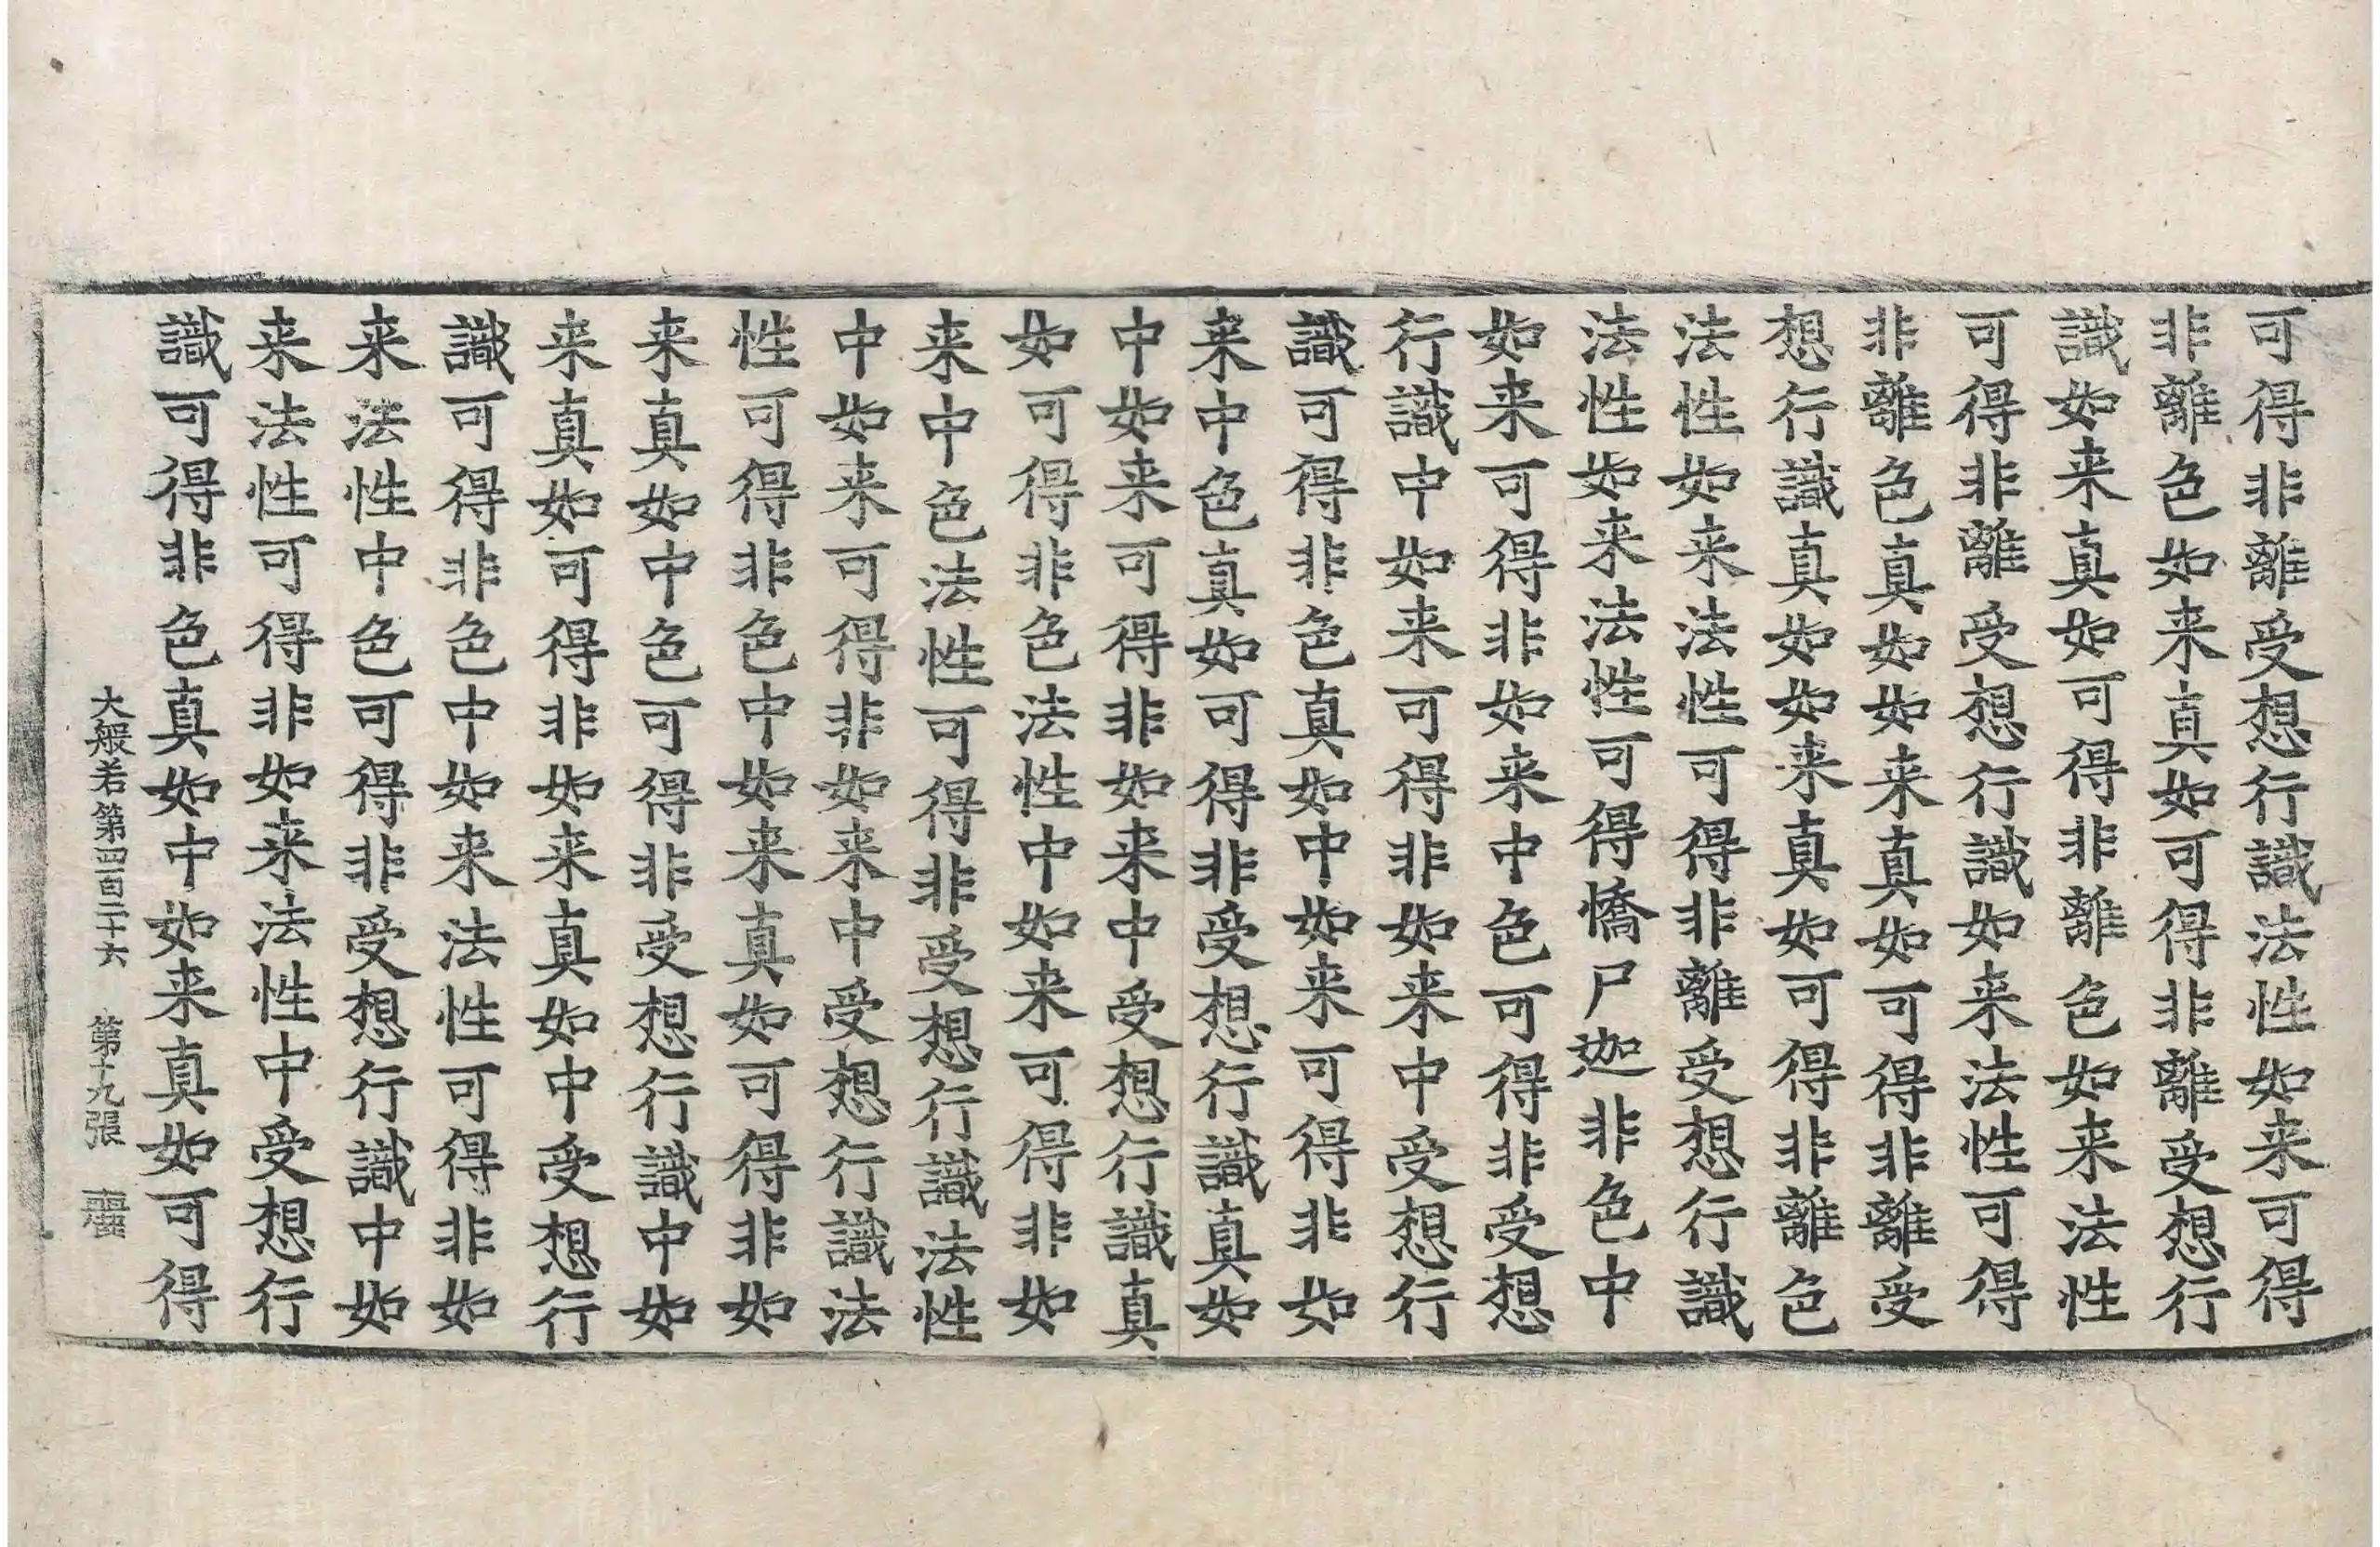 可得非離受想行識法性如来可得
非離色如来真如可得非離受想行
識如来真如可得非離色如来法性
可得非離受想行識如来法性可得
非離色真如如来真如可得非離受
想行識真如如来真如可得非離色
法性如来法性可得非離受想行識
法性如来法性可得憍尸迦非色中
如来可得非如来中色可得非受想
行識中如来可得非如来中受想行
識可得非色真如中如来可得非如
来中色真如可得非受想行識真如
中如来可得非如来中受想行識真
如可得非色法性中如来可得非如
来中色法性可得非受想行識法性
中如来可得非如来中受想行識法
性可得非色中如来真如可得非如
来真如中色可得非受想行識中如
来真如可得非如来真如中受想行
識可得非色中如来法性可得非如
来法性中色可得非受想行識中如
来法性可得非如来法性中受想行
識可得非色真如中如来真如可得
大般若第四百二十六 第十九張 麗